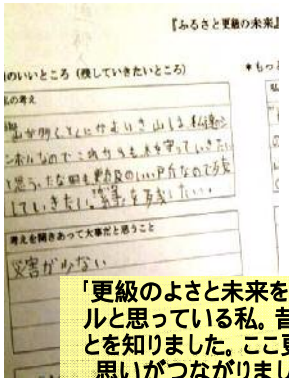 『ふるさと更級の未来』
のいいところ（残していきたいところ）
＊もっ
私の考え
山が多くとくにかむいき山は私達の
ンボルなのでこれからも木を守っていきたい
と思う。たな田も更級のいい所なので残
していきたい。
考えを聞きあって大事だと思うこと
災害が少ない
「更級のよさと未来を
ルと思っている私。昔
とを知りました。ここ更
思いがつながりまし